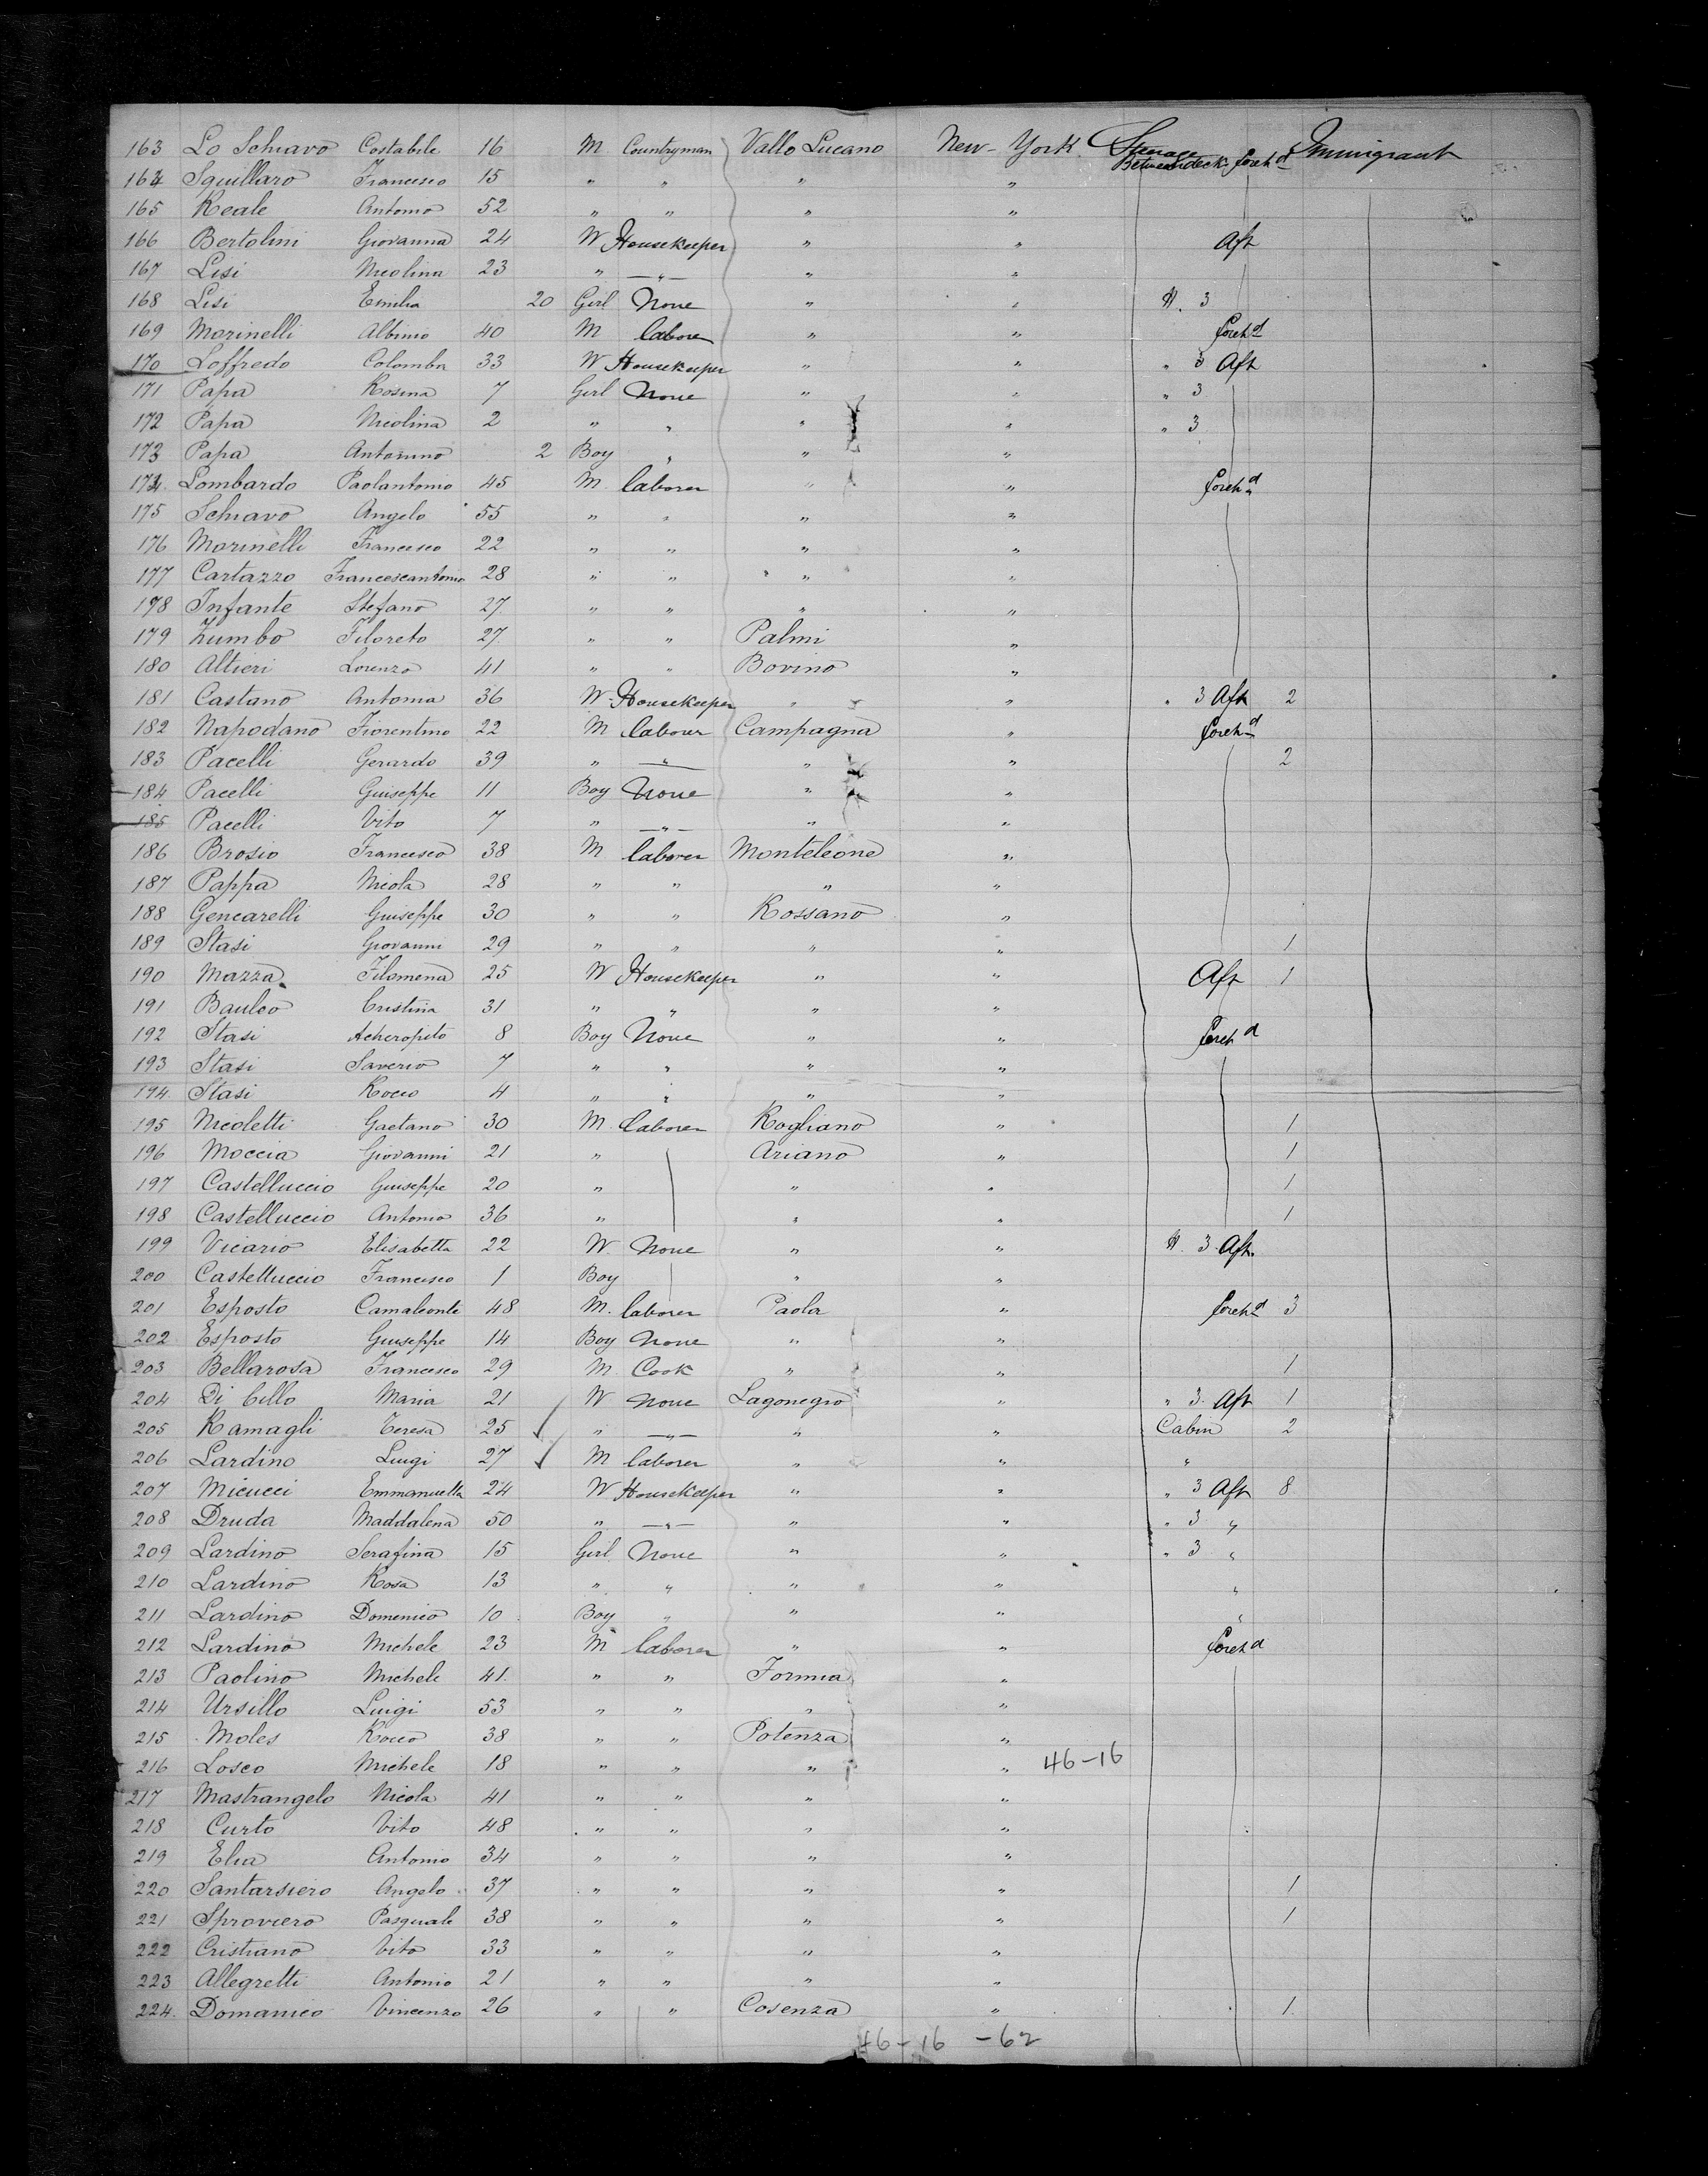 163 Lo Schiavo Costabile 16 M Countryman Vallo Lucano New-York Steerage Betweendeck foreh d Immigrant
164 Squillaro Francesco 15 " " " "
165 Reale Antonio 52 " " " "
166 Bertolini Giovanna 24 W Housekeeper " " Aft
167 Lisi Nicolina 23 " " " "
168 Lisi Emilia 20 Girl None " " H. 3
169 Morinelli Albino 40 M laborer " " foreh d
170 Loffredo Colomba 33 W Housekeeper " " " 3 Aft
171 Papa Rosina 7 Girl None " " " 3
172 Papa Nicolina 2 " " " " " 3
173 Papa Antonino 2 Boy " " "
174 Lombardo Paolantonio 45 M laborer " " foreh d
175 Schiavo Angelo 55 " " " "
176 Morinelli Francesco 22 " " " "
177 Cartazzo Francescantonio 28 " " " "
178 Infante Stefano 27 " " " "
179 Zumbo Filoreto 27 " " Palmi "
180 Altieri Lorenzo 41 " " Bovino "
181 Castano Antonia 36 W Housekeeper " " " 3 Aft 2
182 Napodano Fiorentino 22 M laborer Campagna " foreh d
183 Pacelli Gerardo 39 " " " " 2
184 Pacelli Giuseppe 11 Boy None " "
185 Pacelli Vito 7 " " " "
186 Brosio Francesco 38 M laborer Monteleone "
187 Pappa Nicola 28 " " " "
188 Gencarelli Giuseppe 30 " " Rossano "
189 Stasi Giovanni 29 " " " " 1
190 Mazza Filomena 25 W Housekeeper " " Aft 1
191 Bauleo Cristina 31 " " " "
192 Stasi Acheropito 8 Boy None " " foreh d
193 Stasi Saverio 7 " " " "
194 Stasi Rocco 4 " " " "
195 Nicoletti Gaetano 30 M laborer Rogliano " 1
196 Moccia Giovanni 21 " Ariano " 1
197 Castelluccio Giuseppe 20 " " " 1
198 Castelluccio Antonio 36 " " " 1
199 Vicario Elisabetta 22 W. None " " H. 3. Aft.
200 Castelluccio Francesco 1 Boy " "
201 Esposto Camaleonte 48 M. laborer Paola " foreh d 3
202 Esposto Giuseppe 14 Boy None " "
203 Bellarosa Francesco 29 M. Cook " " 1
204 Di Cello Maria 21 W None Lagonegro " " 3. Aft 1
205 Ramagli Teresa 25 " " " " Cabin 2
206 Lardino Luigi 27 M laborer " " "
207 Micucci Emmanuella 24 W Housekeeper " " " 3 Aft 8
208 Druda Maddalena 50 " " " " " 3 "
209 Lardino Serafina 15 Girl None " " " 3 "
210 Lardino Rosa 13 " " " " "
211 Lardino Domenico 10 Boy " " " "
212 Lardino Michele 23 M laborer " " foreh d
213 Paolino Michele 41 " " Formia "
214 Ursillo Luigi 53 " " " "
215 Moles Rocco 38 " " Potenza "
216 Losco Michele 18 " " " " 46-16
217 Mastrangelo Nicola 41 " " " "
218 Curto Vito 48 " " " "
219 Elia Antonio 34 " " " "
220 Santarsiero Angelo 37 " " " " 1
221 Sproviero Pasquale 38 " " " " 1
222 Cristiano Vito 33 " " " "
223 Allegretti Antonio 21 " " " "
224. Domanico Vincenzo 26 " " Cosenza " 1
46-16 -62